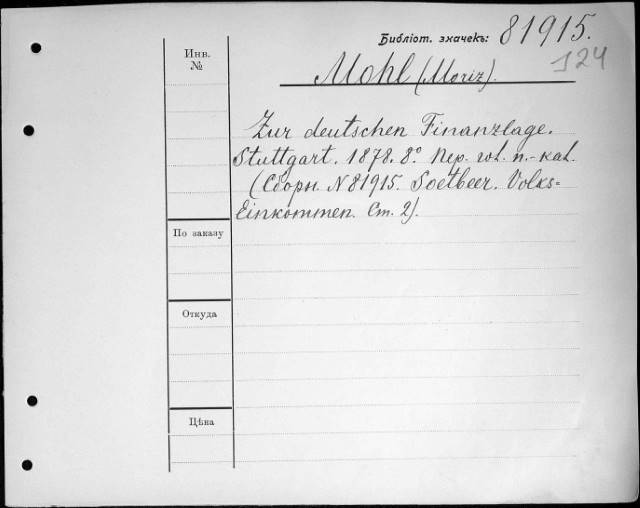 Библіот. значекъ: 81915.
124
Инв.
№
Mohl (Moriz).
Zur deutschen Finanzlage.
Stuttgart. 1878. 8º. Пер. зол. п.-кал.
(Сборн. N 81915. Soetbeer. Volks=
Einkommen. Ст. 2).
По заказу
Откуда
Цѣна